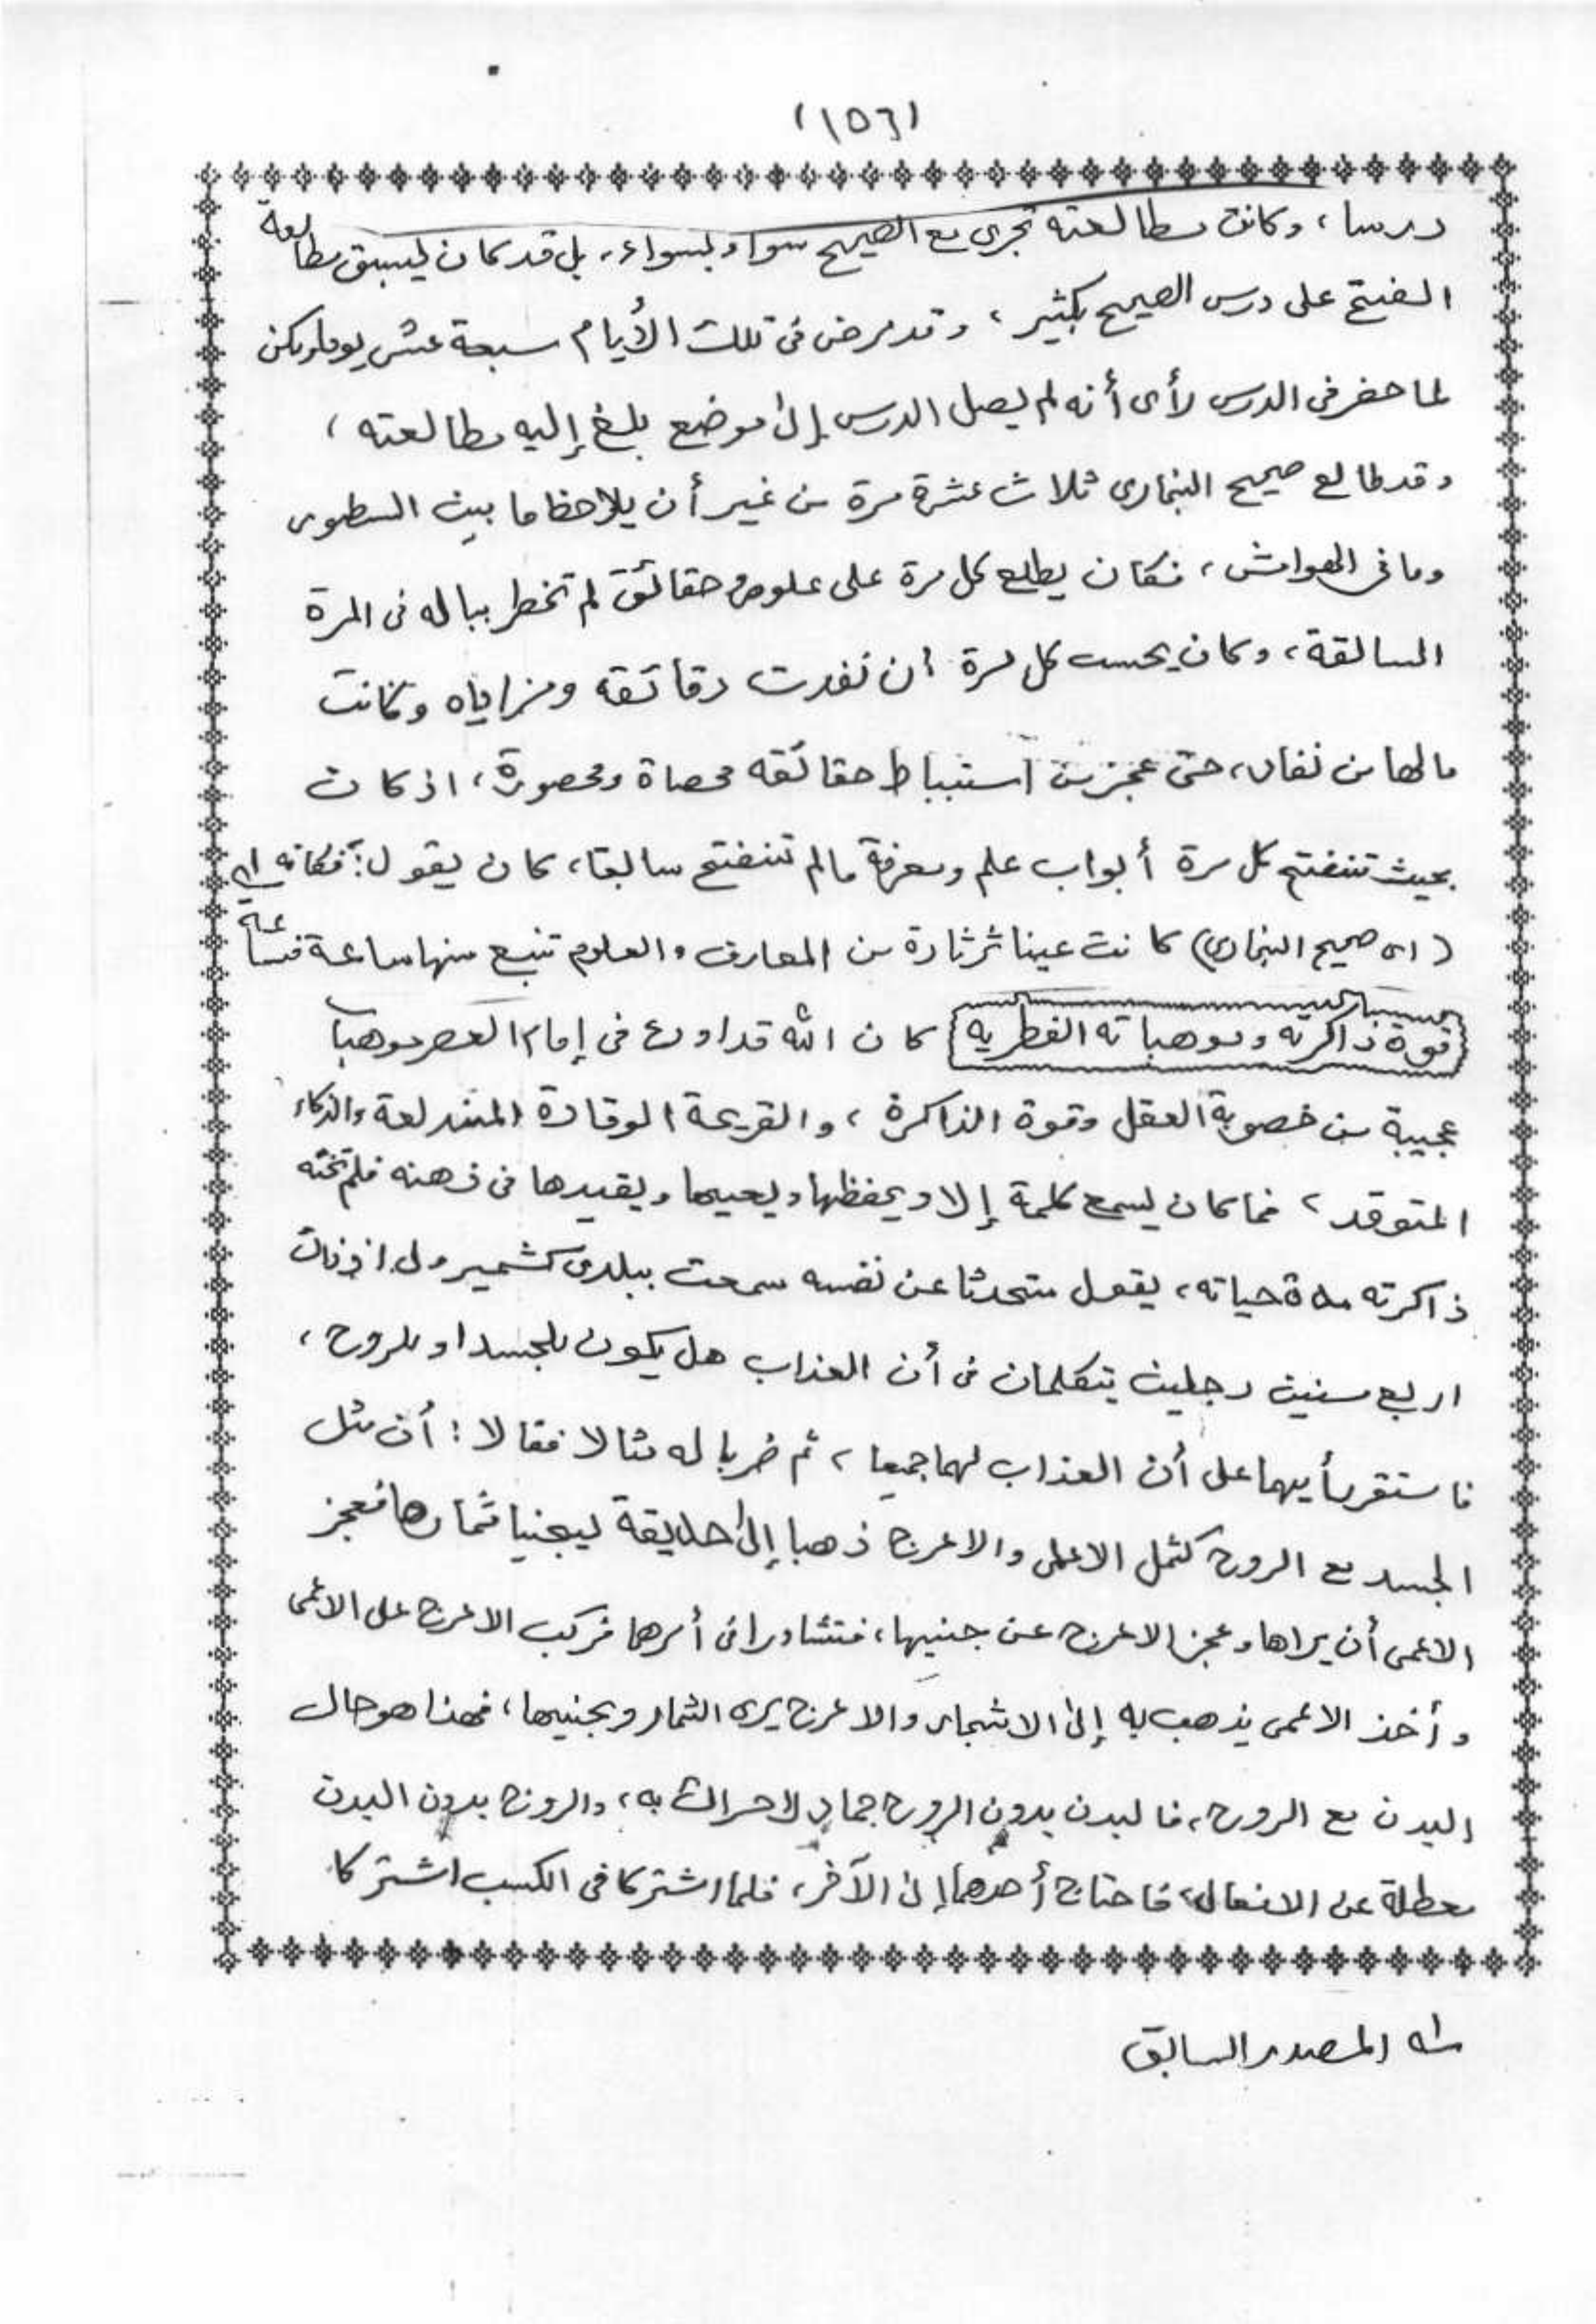 (١٥٦)
درسا، وكانت مطالعته تجرى مع الصحيح سواء بسواء، بل قد كان ليسبق مطالعة
الفتح على درس الصحيح بكثير، وقد مرض فى تلك الأيام سبعة عشر يوما ولكن
لما حضر فى الدرس رأى أنه لم يصل الدرس إلى موضع بلغ إليه مطالعته،
وقد طالع صحيح البخارى ثلاث عشرة مرة من غير أن يلاحظ ما بين السطور
وما فى الهوامش، فكان يطلع كل مرة على علوم و حقائق لم تخطر بباله فى المرة
السالقة، وكان يحسب كل مرة أن نفدت دقائقه ومزاياه وكانت
مالها من نفاد، حتى عجز من استنباط حقائقه محصاة ومحصورة، اذ كان
بحيث تنفتح كل مرة أبواب علم ومعرفة مالم تنفتح سابقا، كان يقول: فكانه
(اى صحيح البخارى) كانت عينا ثرثارة من المعارف والعلوم تنبع منها ساعة فساعة
قوة ذاكرته وموهباته الفطريه كان الله قد اودع فى إمام العصر موهبا
عجيبة من خصوبة العقل وقوة الذاكرة، والقريحة الوقادة المندلعة والذكاء
المتوقد، فما كان يسمع كلمة إلا ويحفظها ويعيها ويقيدها فى ذهنه فلم تخنه
ذاكرته مدة حياته، يقول متحدثا عن نفسه سمعت ببلدى كشمير ولى اذ ذاك
اربع سنين رجلين يتكلمان فى أن العذاب هل يكون للجسد او للروح،
فاستقر رأيهما على أن العذاب لهما جميعا، ثم ضربا له مثالا فقالا: أن مثل
الجسد مع الروح كمثل الاعمى والاعرج ذهبا إلى حديقة ليجنيا ثمارها فعجز
الاعمى أن يراها وعجز الاعرج عن جنيها، فتشاورا فى أمرهما فركب الاعرج على الاعمى
وأخذ الاعمى يذهب به إلى الاشجار والاعرج يرى الثمار ويجنيها، فهذا هو حال
البدن مع الروح، فالبدن بدون الروح جماد لاحراك به، والروح بدون البدن
معطلة عن الافعال، فاحتاج أحدهما إلى الآخر، فلما اشتركا فى الكسب اشتركا
له المصدر السابق